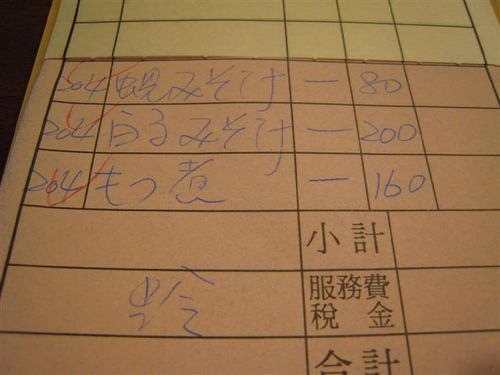 204 蜆みそ汁 一 80
204 みそ汁 一 200
204 もつ煮 一 160
小計
蛤 服務費
税金
合計